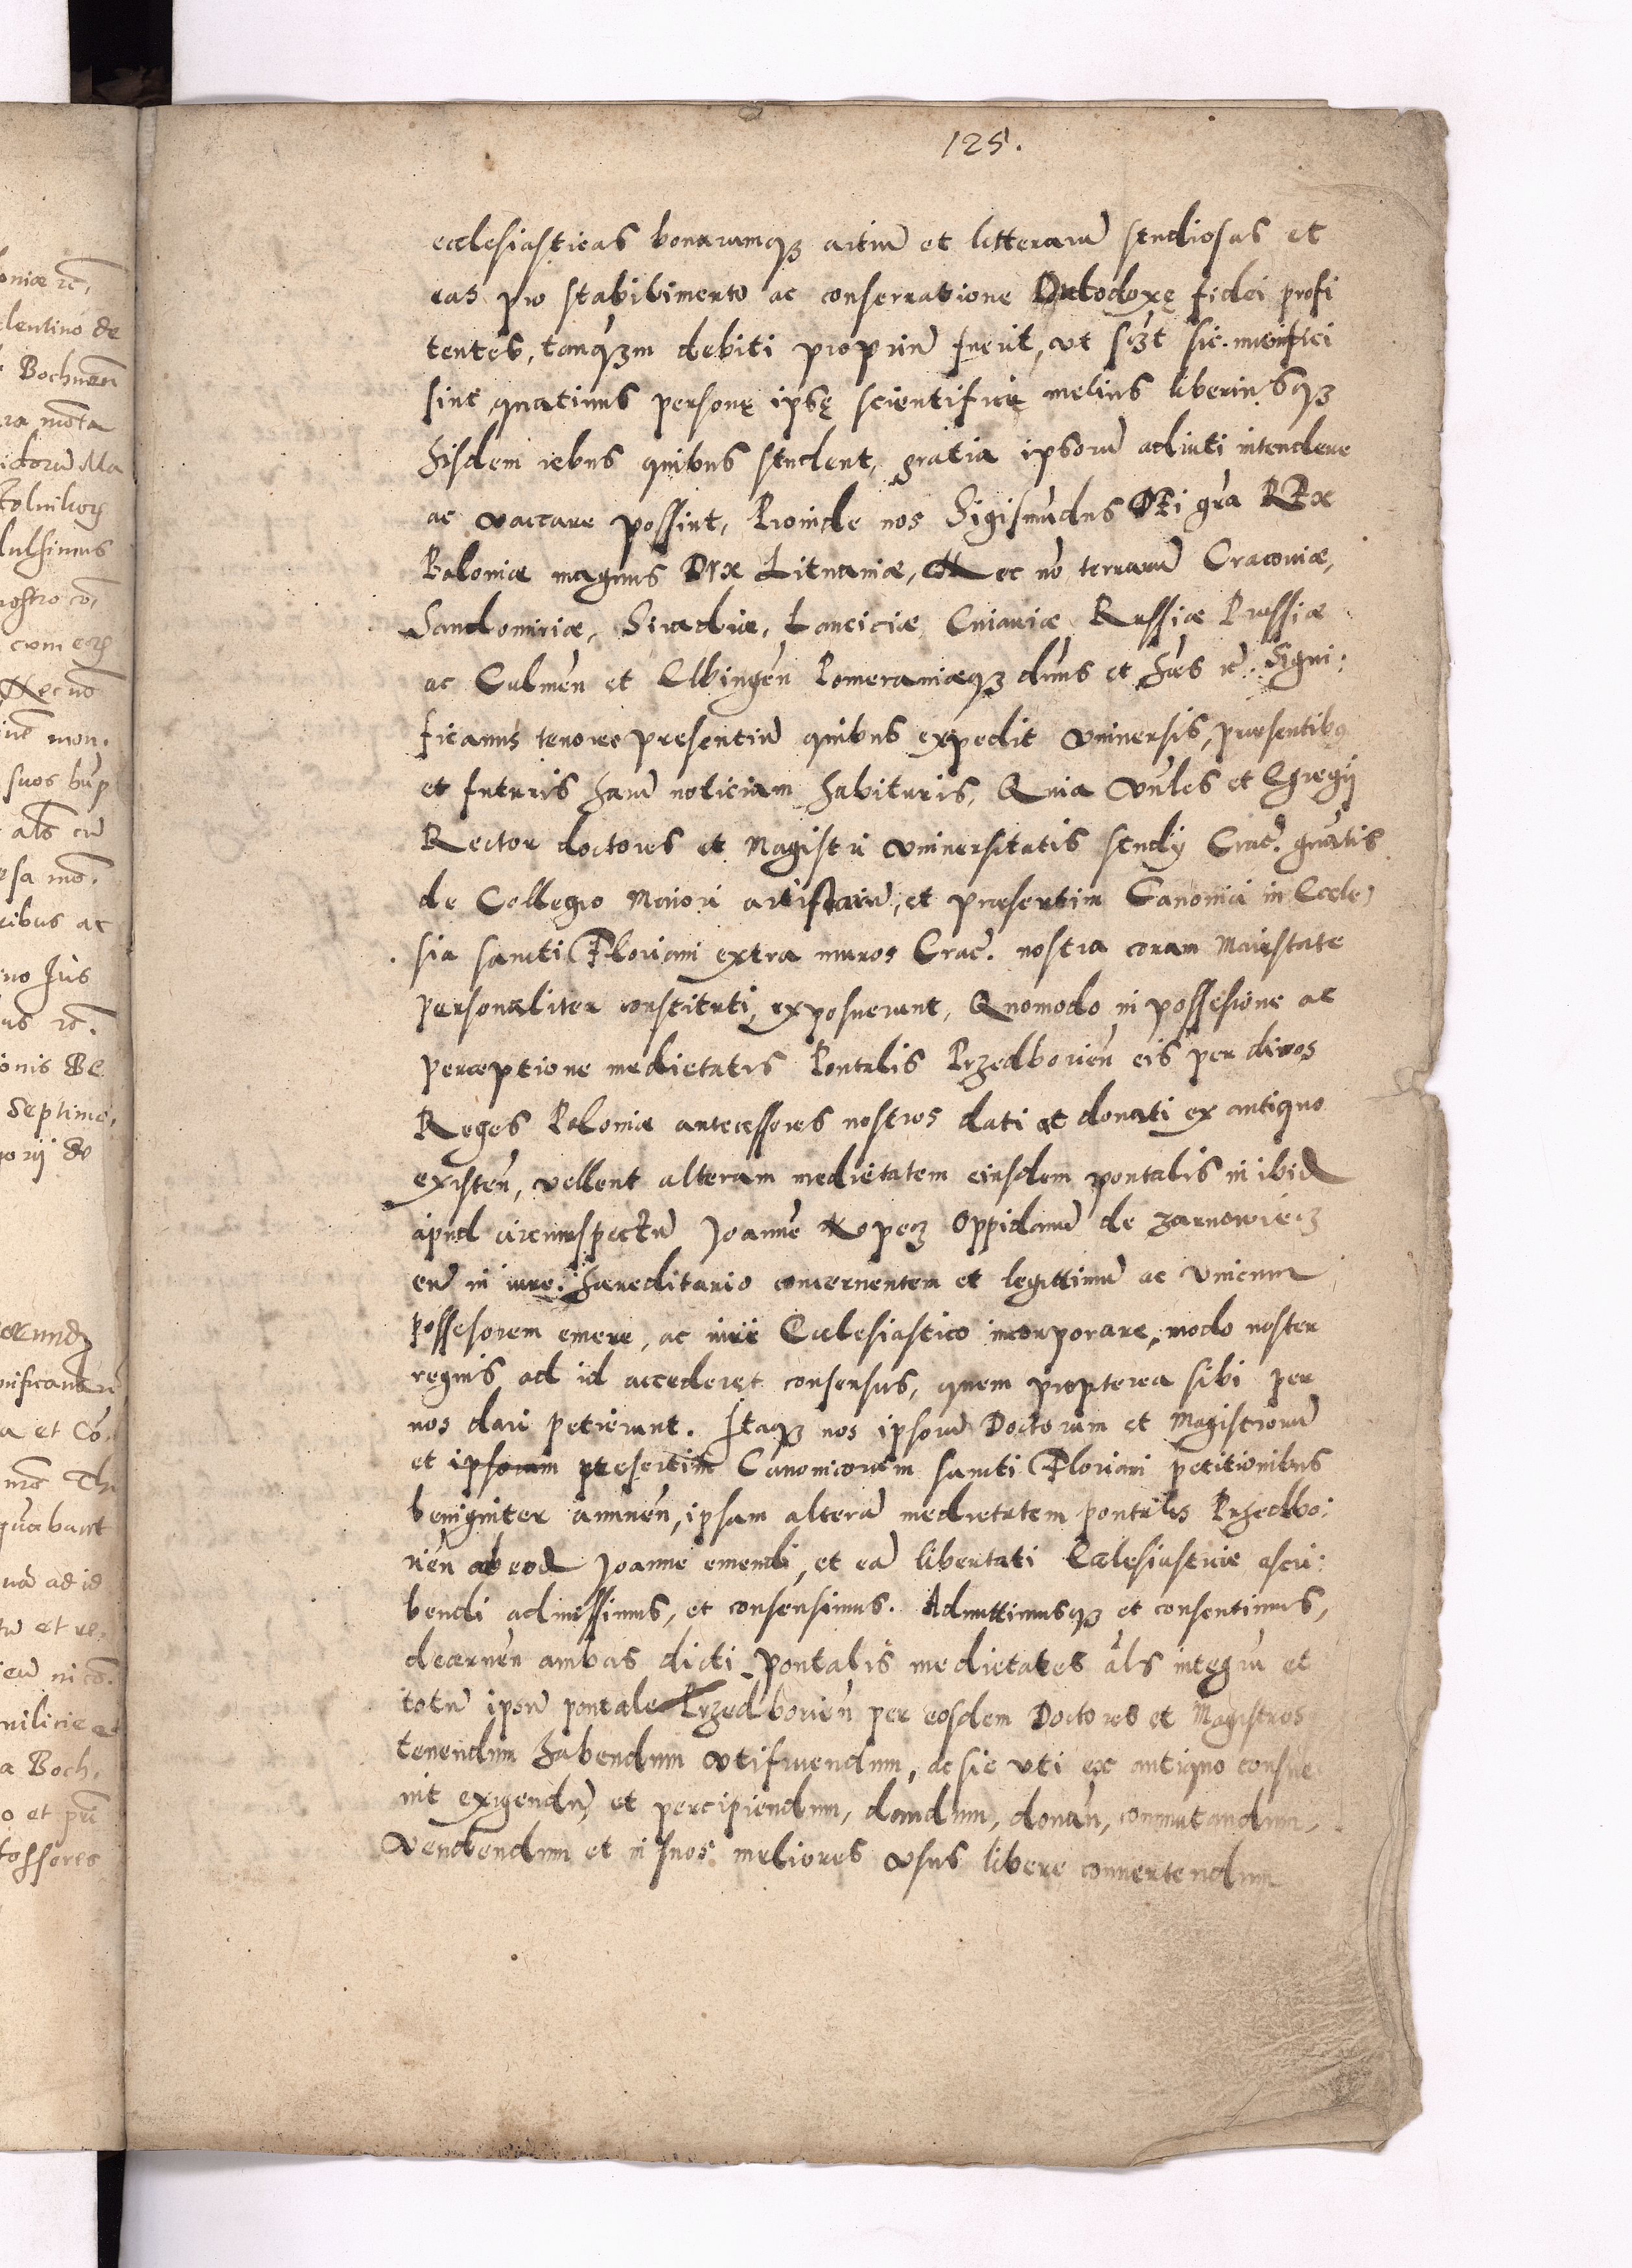 125.
ecclesiasticas bonarumqꝫ artiū et litterarū studiosas et
eas pro stabilimento ac conservatione Ortodoxę fidei profi
tentes, tanqꝫm debiti propriū fuerit, ut sicut sic. munifici
sint quatinus personę ipsę scientificę melius liberiusqꝫ
hisdem rebus quibus student, gratia ipsorū adiuti intendere
ac vaccare possint, Proinde nos Sigismūdus DEi gra REx
Poloniæ magnus DVx Lituaniæ, Nec nō terrarū Cracoviæ,
Sandomiriæ, Siradiæ, Lanciciæ Cuiaviæ Russiæ Prussiæ
ac Culmeñ et Elbingeñ Pomeraniæqꝫ dūns et hæs rc̄. Signi:
ficamus tenore presentiū quibus expedit universis, præsentibꝯ
et futuris harū noticiam habituris, Quia Vnles et Egregij
Rector doctores et Magistri universitatis studij Crac̄. gnātis
de Collegio Maiori artistarū, et præsertim Canonici in Eccle)
sia sancti Floriani extra muros Crac̄. nostra coram Maiestate
personaliter constituti, exposuerunt, Quomodo in possesione ac
perceptione medietatis Pontalis Przedborieñ eis per divos
Reges Poloniæ antecessores nostros dati et donati ex antiquo
existeñ, vellent alteram medietatem eiusdem pontalis in ibid
apud circumspectū Joannē Kopecz Oppidanū de Zarnowiecz
eū in iure: hæreditario concernentem et legittimū ac unicum
possesorem emere, ac iurii Ecclesiastico incorporare, modo noster
regius ad id accederet consensus, quem propterea sibi per
nos dari petierunt. Itaqꝫ nos ipsorū Doctorum et Magistrorū
et ipsorum presertim Canonicorum sancti Floriani petitionibus
benigniter annueñ, ipsam alterā medietatem pontalis Przedbo:
rieñ ab eod Joanne emendi, et eā libertati Ecclesiasticæ ascri:
bendi admissimus, et consensimus. Admittimusqꝫ et consentimus,
decerneñ ambas dicti pontalis medietates āls integrū et
totū ipsū pontale Przedborieñ per eosdem Doctores et Magistros
tenendum habendum utifruendum, ac sic uti ex antiquo consue
uit exigendū et percipiendum, dandum, donañ, commutandum,
Vendendum et in suos meliores usus libere convertendum